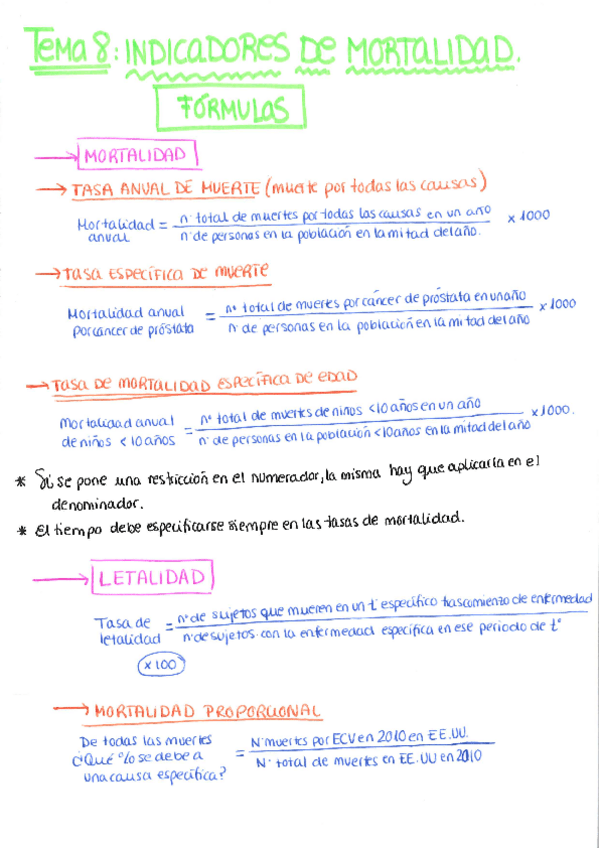 TEMA 8: INDICADORES DE MORTALIDAD.
FÓRMULAS
→ MORTALIDAD
→ TASA ANUAL DE MUERTE (muerte por todas las causas)
Mortalidad anual = nº total de muertes por todas las causas en un año / nº de personas en la población en la mitad del año. x 1000
→ TASA ESPECÍFICA DE MUERTE
Mortalidad anual por cáncer de próstata = nº total de muertes por cáncer de próstata en un año / nº de personas en la población en la mitad del año x 1000
→ TASA DE MORTALIDAD ESPECÍFICA DE EDAD
Mortalidad anual de niños < 10 años = nº total de muertes de niños < 10 años en un año / nº de personas en la población < 10 años en la mitad del año x 1000.
* Si se pone una restricción en el numerador, la misma hay que aplicarla en el
denominador.
* El tiempo debe especificarse siempre en las tasas de mortalidad.
→ LETALIDAD
Tasa de letalidad = nº de sujetos que mueren en un tº específico tras comienzo de enfermedad / nº de sujetos con la enfermedad específica en ese periodo de tº
x 100
→ MORTALIDAD PROPORCIONAL
De todas las muertes ¿Qué % se debe a una causa específica? = Nº muertes por ECV en 2010 en EE.UU. / Nº total de muertes en EE.UU en 2010